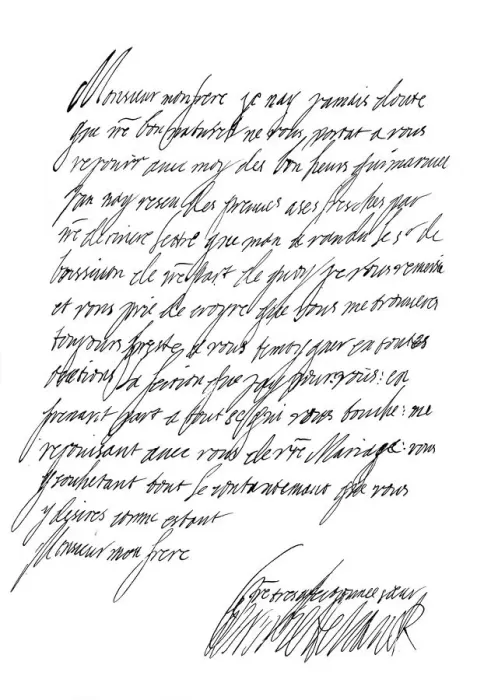 Monsieur mon frere je nay jamais doute
que vre bon naturel ne vous portat a vous
rejouir avec moy des bon heurs qui
jan nay reseu des preuves ases fresches par
vre derniere lettre que man a randu le sr de
de vre part de quoy je vous remersie
et vous prie de croyre que vous me trouveres
toujours preste a vous temoygner en toutes
la fection que jay pour vous: en
prenant part a tout se qui vous touche: me
rejouisant avec vous de vre Mariage: vous
souhetant tout le contantemant que vous
y desires comme estant
Monsieur mon frere
Vre tres afectionnee sœur